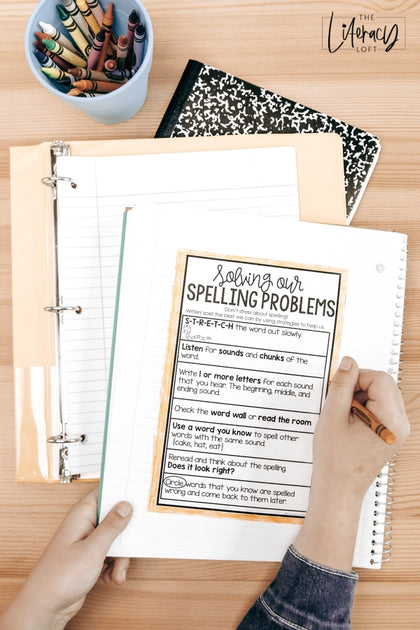 THE
Literacy
LOFT
Solving our
SPELLING PROBLEMS
Don't stress about spelling!
Writers spell the best we can by using strategies to help us.
S-T-R-E-T-C-H the word out slowly.
Listen for sounds and chunks of the
word.
Write 1 or more letters for each sound
that you hear. The beginning, middle, and
ending sound.
Check the word wall or read the room.
Use a word you know to spell other
words with the same sound.
{cake, hat, eat}
Reread and think about the spelling.
Does it look right?
Circle words that you know are spelled
wrong and come back to them later.